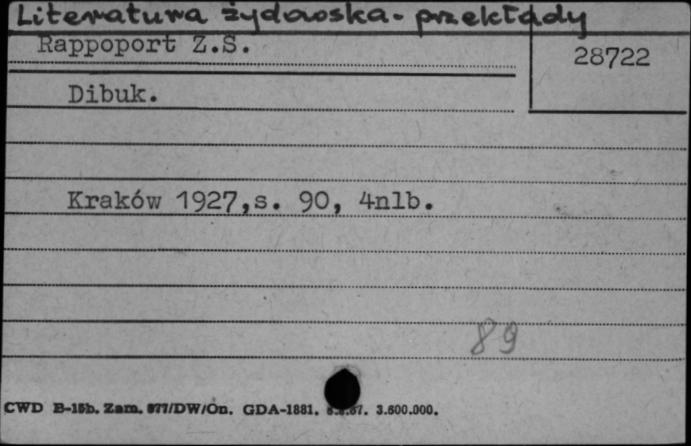 Literatura żydowska - przekłady
Rappoport Z.S.
28722
Dibuk.
Kraków 1927,s. 90, 4nlb.
89
CWD B-15b. Zam. 977/DW/On. GDA-1881. 3.600.000.